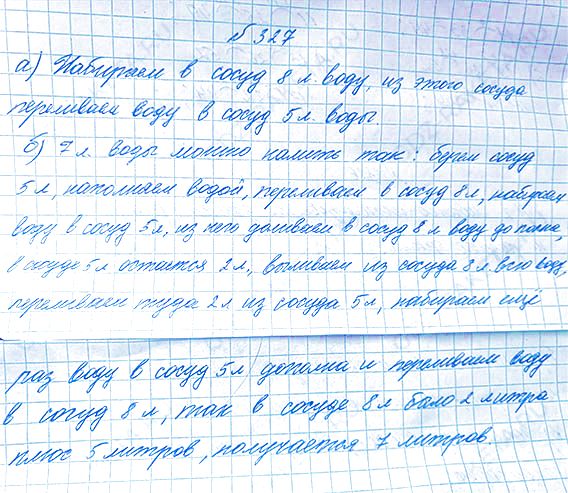 № 327
а) Набираем в сосуд 8 л воду, из этого сосуда
переливаем воду в сосуд 5 л воды.
б) 7 л воды можно налить так: берем сосуд
5 л, наполняем водой, переливаем в сосуд 8 л, набираем
воду в сосуд 5 л, из него доливаем в сосуд 8 л воду до полна,
в сосуде 5 л остается 2 л., выливаем из сосуда 8 л всю воду,
переливаем туда 2 л из сосуда 5 л, набираем ещё
раз воду в сосуд 5 л дополна и переливаем воду
в сосуд 8 л, так в сосуде 8 л было 2 литра
плюс 5 литров, получается 7 литров.